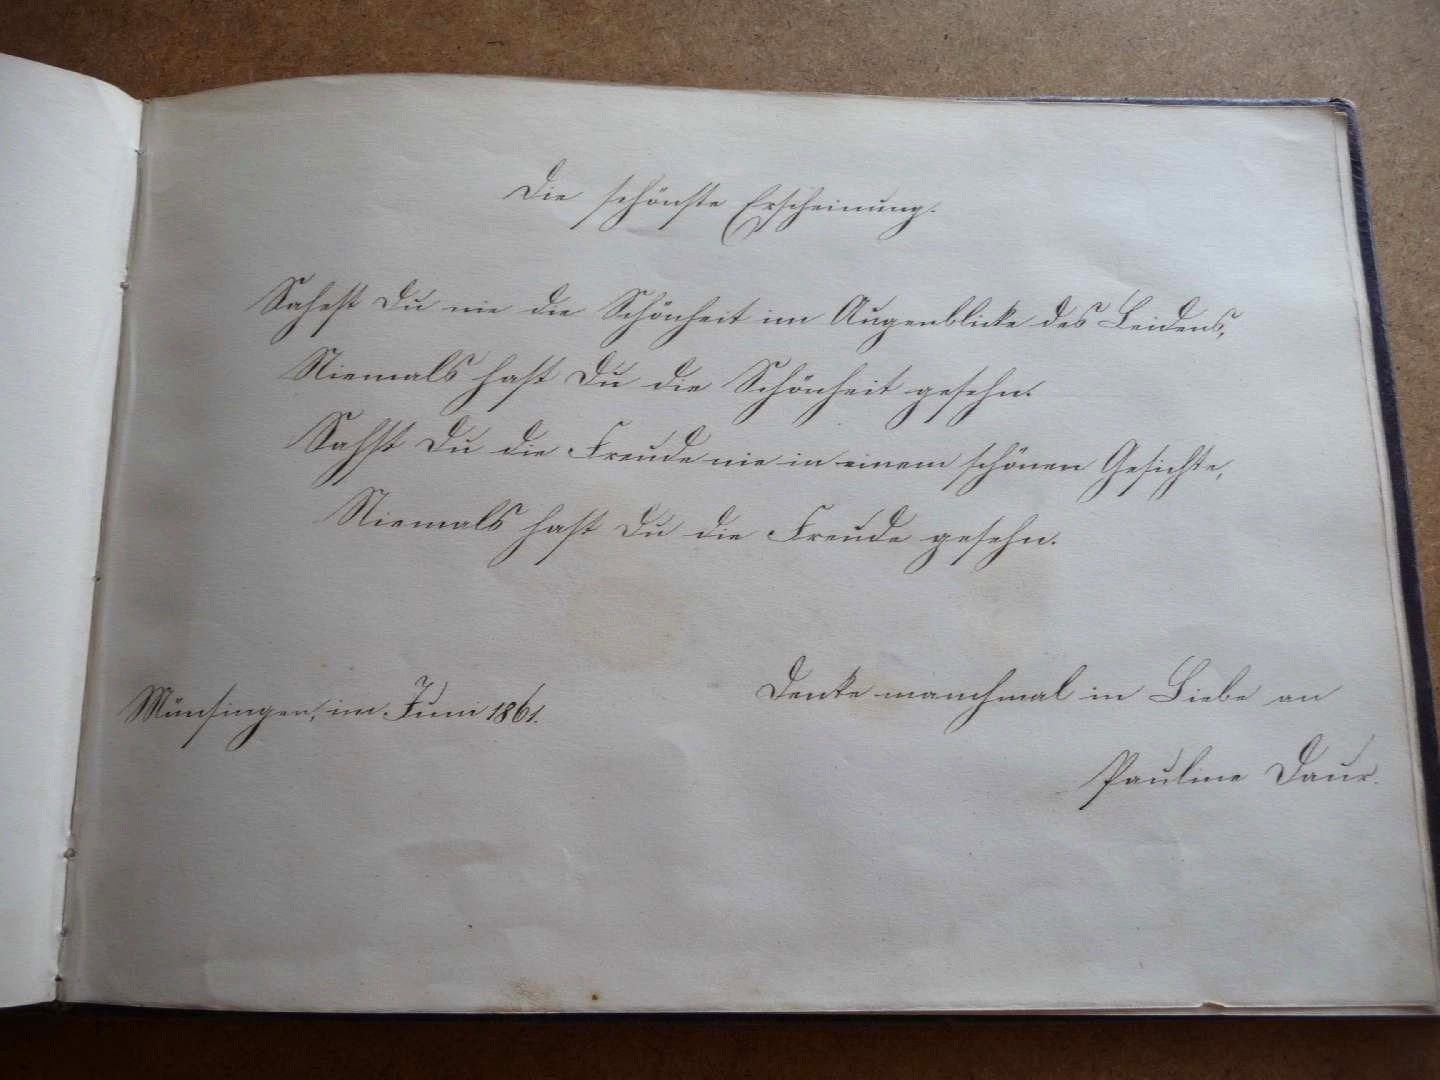 Die schönste Erscheinung.
Sahest Du nie die Schönheit im Augenblicke des Leidens,
Niemals hast Du die Schönheit gesehn.
Sahst Du die Freude nie in einem schönen Gesichte,
Niemals hast Du die Freude gesehn.
Denke manchmal in Liebe an
Münsingen, im Juni 1861.
Pauline Daur.